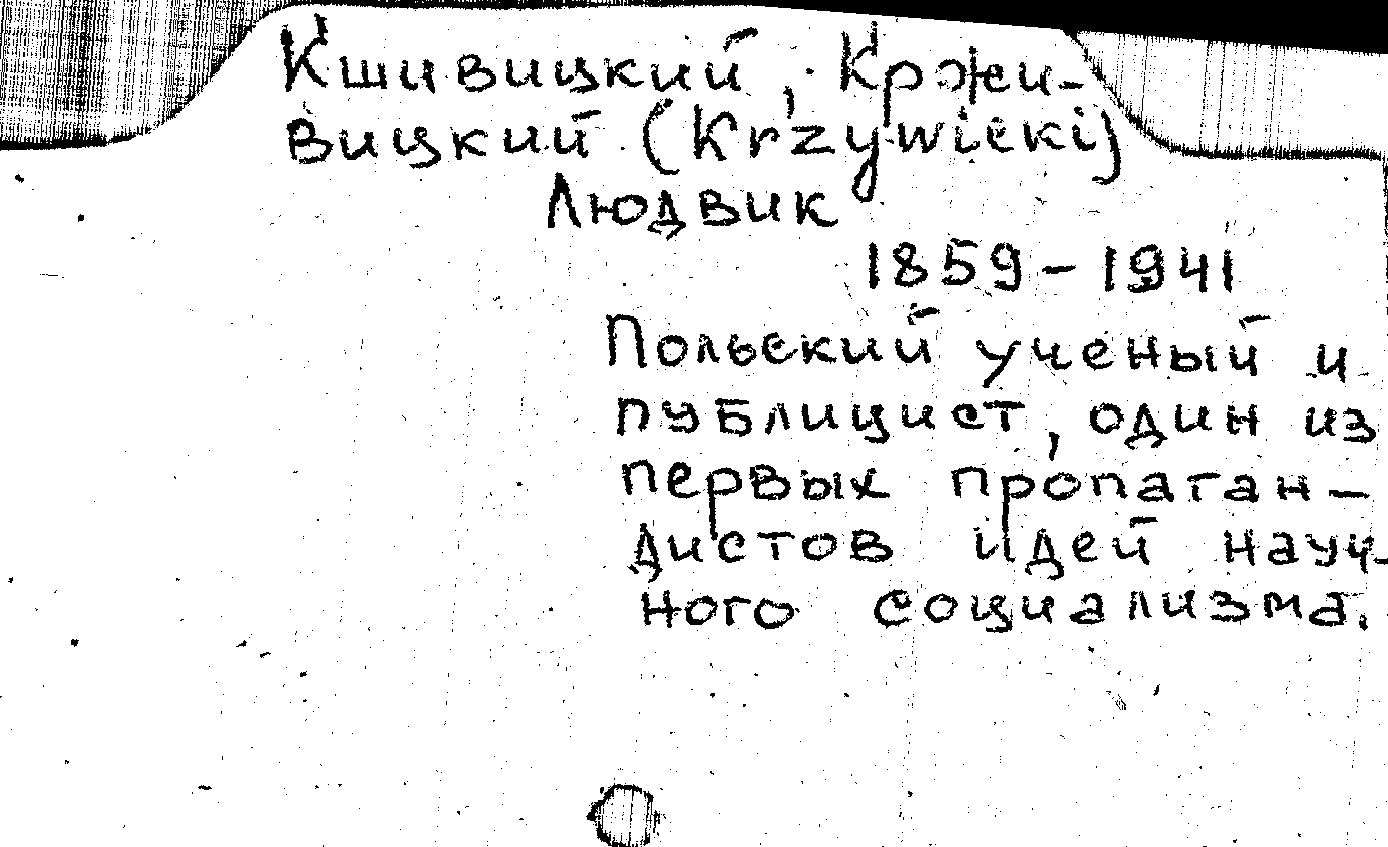 Кшивицкий, Кржи-
вицкий (Krzywicki)
Людвик
1859-1941
Польский ученый и
публицист, один из
первых пропаган-
дистов идей науч-
ного социализма.